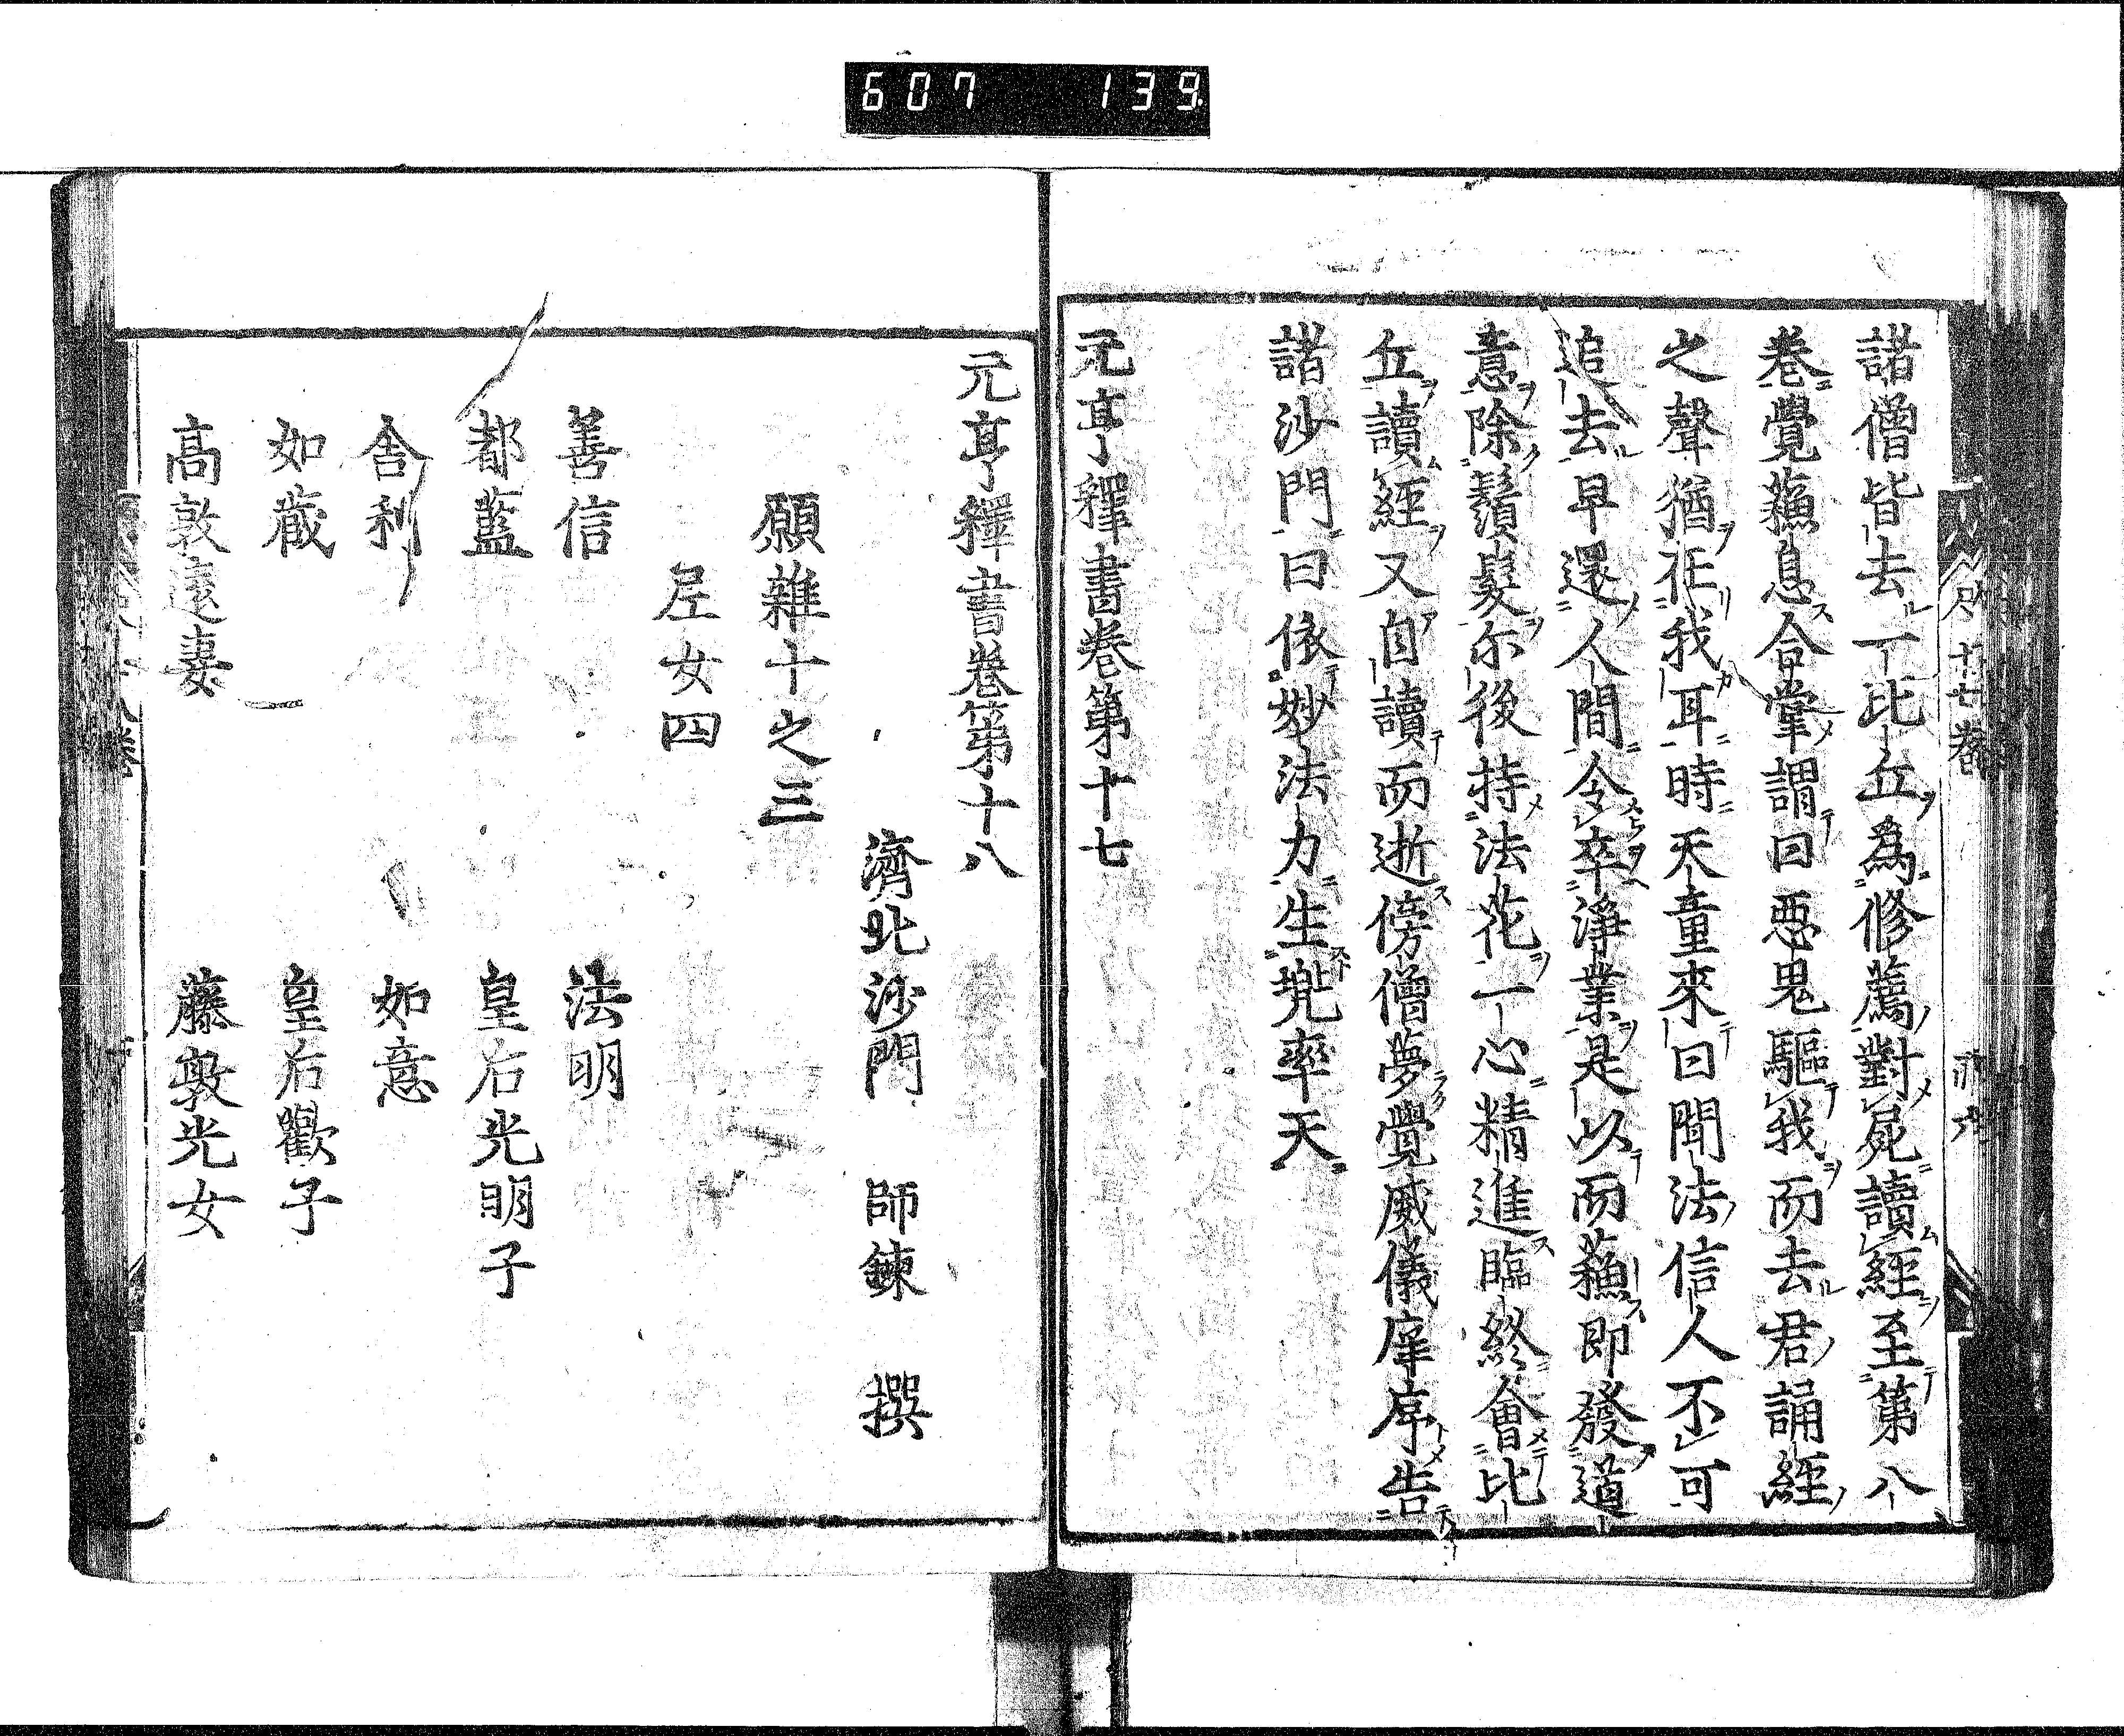 607 139
諸僧皆去一比丘爲修薦對屍讀經至第八
卷覺蘓息合掌謂曰惡鬼驅我而去君誦經
之聲猶在我耳時天童來曰聞法信人不可
追去早還人間令卒淨業是以而蘓即發道
意除鬚髮尓後持法花一心精進臨終會比
丘讀經又自讀而逝傍僧夢覺威儀庠序告
諸沙門曰依妙法力生兠率天
元亨釋書卷第十七
元亨釋書卷第十八
濟北沙門 師鍊 撰
願雜十之三
尼女四
善信 法明
都藍 皇后光明子
舍利 如意
如蔵 皇后歡子
高敦遠妻 藤敦光女